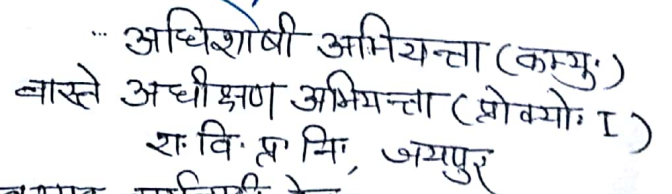 अधिशाषी अभियन्ता (कम्यु॰)
वास्ते अधीक्षण अभियन्ता (प्रोक्यो॰ I)
रा॰ वि॰ प्र॰ नि॰, जयपुर